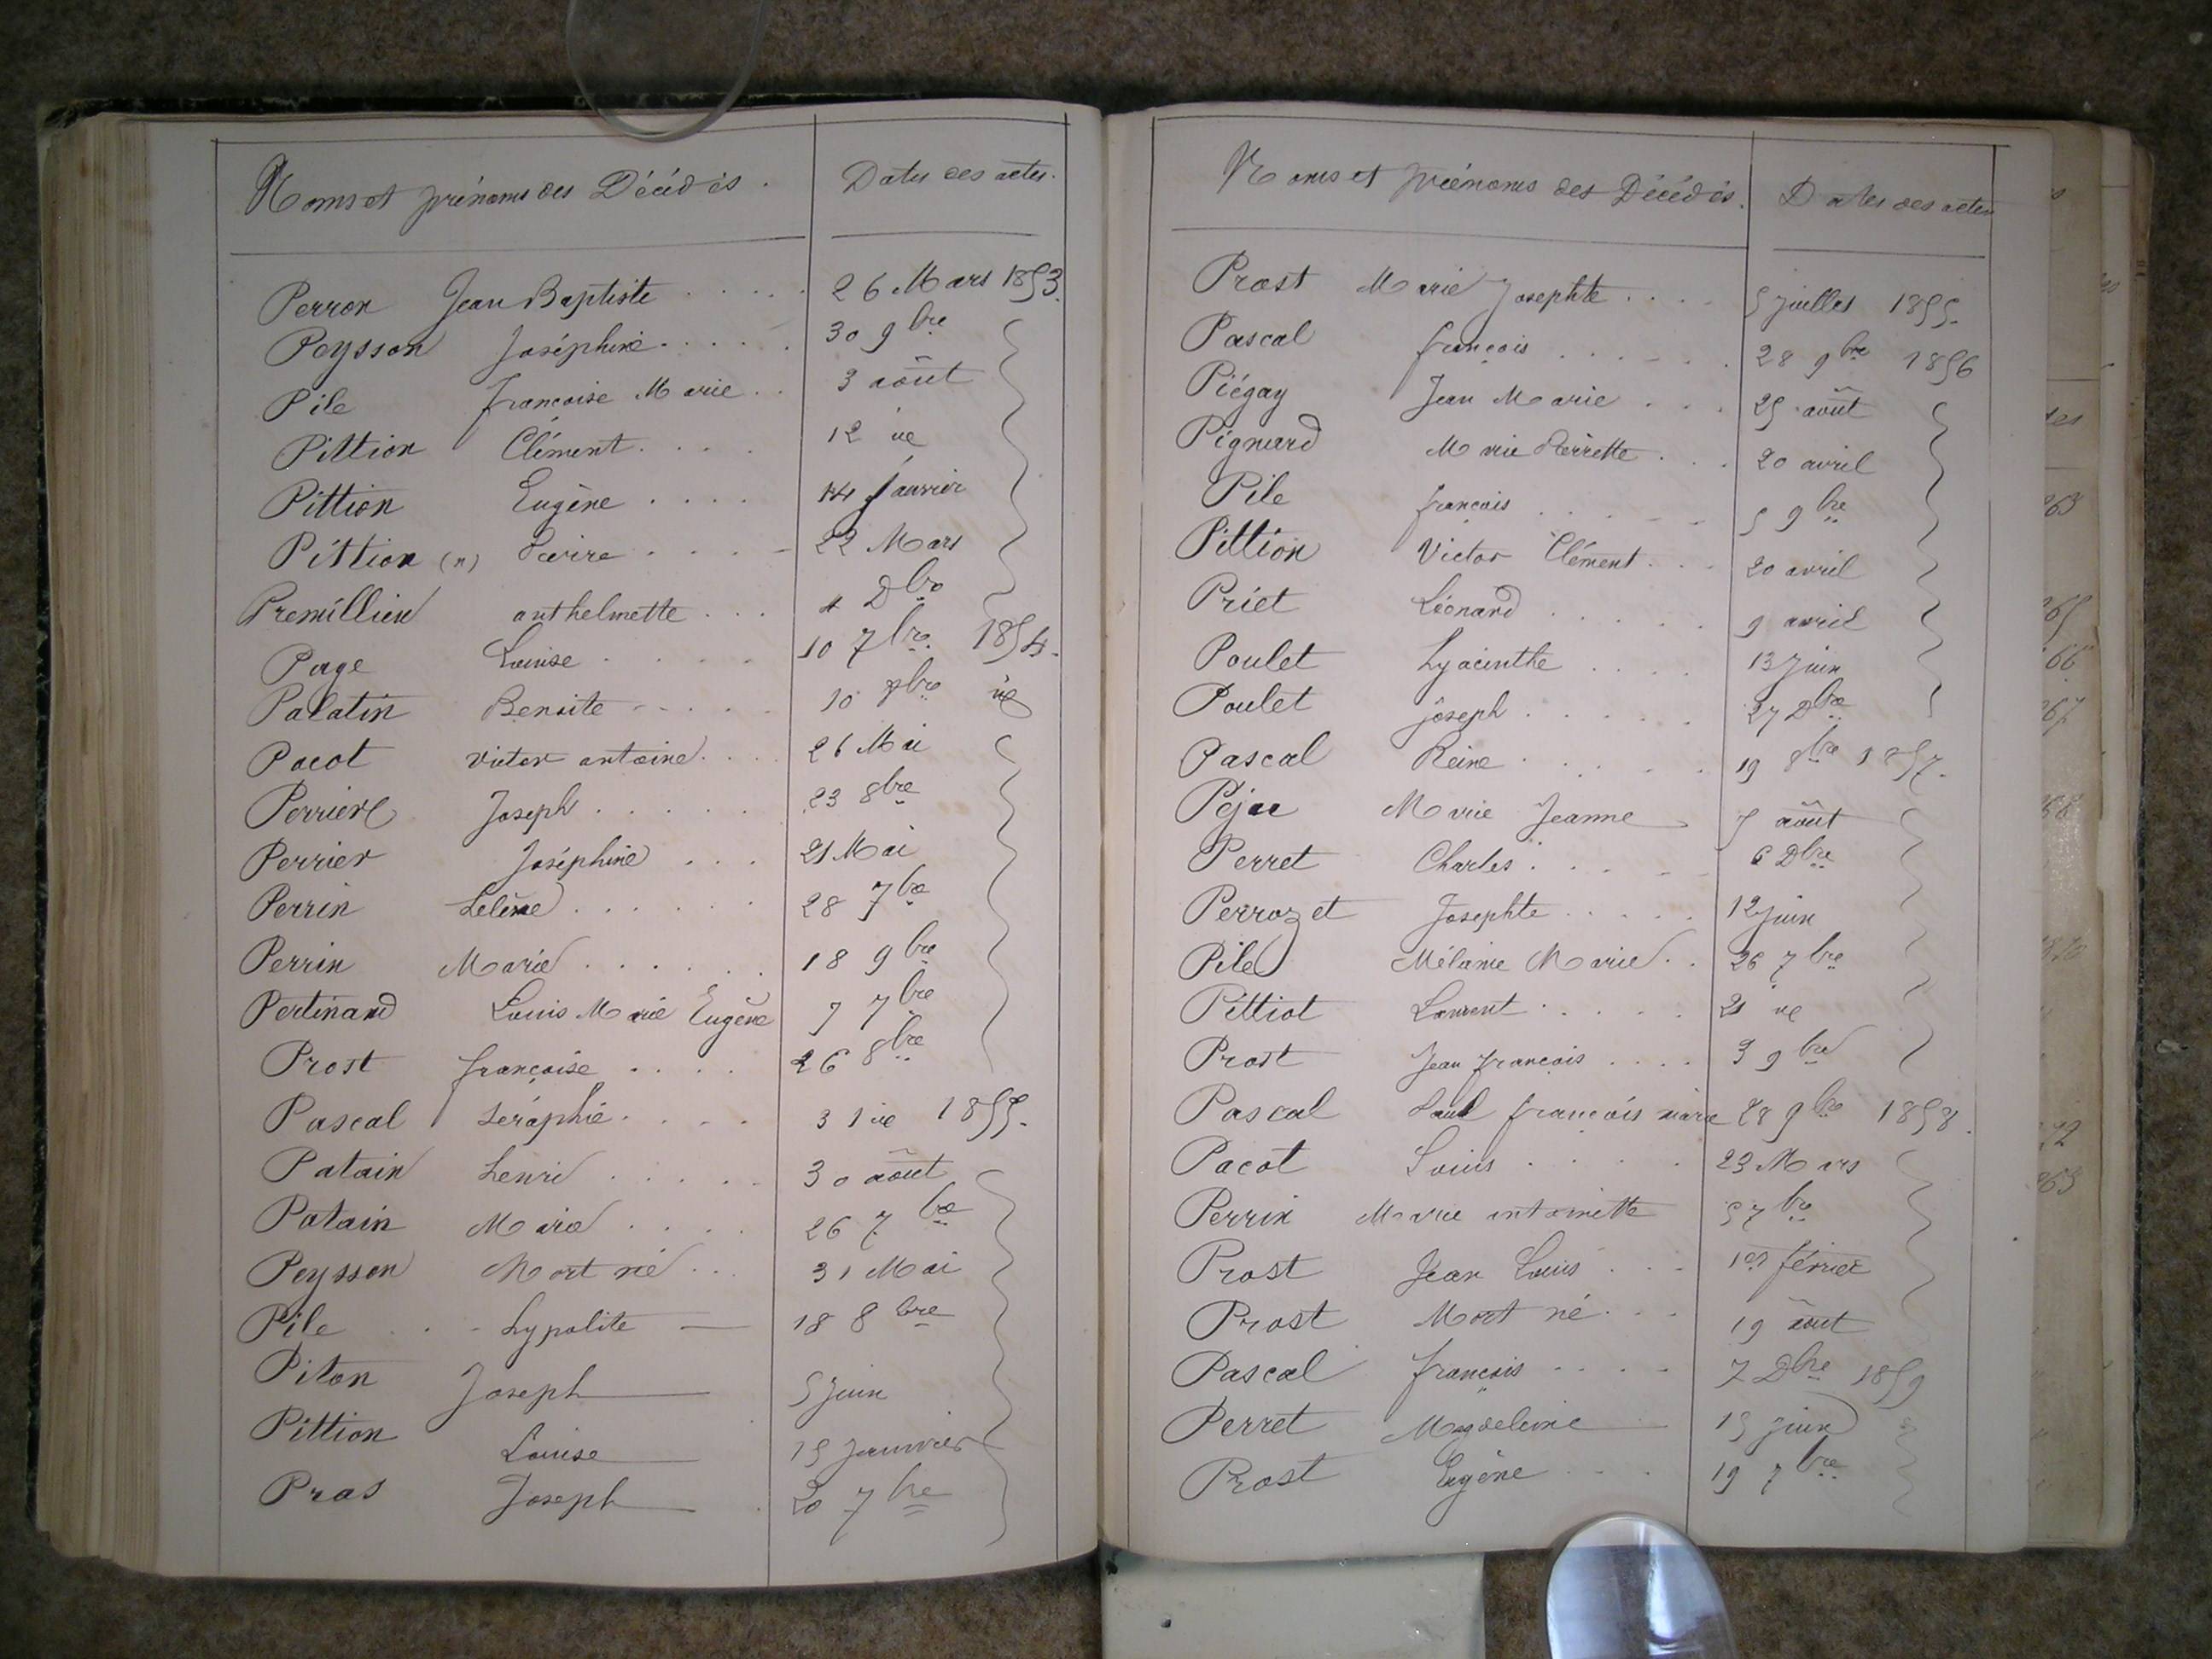 Noms et prénoms des Décédés. Dates des actes.
Perron Jean Baptiste .... 26 Mars 1853.
Peysson Joséphine ..... 30 9bre
Pile françoise Marie .. 3 août
Pittion Clément .... 12 ie
Pittion Eugène .... 14 janvier
Pittion (n) Pierre .... 22 Mars
Premillieu anthelmette ... 4 Dbre
Page Louise .... 10 7bre 1854.
Palatin Benoite ..... 10 bre ie
Pacot victor antoine .... 26 Mai
Perriere Joseph ...... 23 8bre
Perrier Joséphine ... 21 Mai
Perrin ...... 28 7bre
Perrin Marie ...... 18 9bre
Pertinand Louis Marie Eugène 7 7bre
Prost françoise .... 26 8bre
Pascal Séraphie .... 31 ie 1855.
Patain henri ..... 30 août
Patain Marie .... 26 7bre
Peysson Mort né ... 31 Mai
Pile ... hypolite — 18 8bre
Piton Joseph — 5 juin
Pittion Louise — 15 janvier
Pras Joseph — 20 7bre
Noms et prénoms des Décédés. Dates des actes
Prost Marie Josephte .... 5 juillet 1855.
Pascal françois ...... 28 9bre 1856
Piégay Jean Marie ... 25 août
Pignard Marie Pierrette ... 20 avril
Pile françois ..... 5 9bre
Pittion Victor Clément ... 20 avril
Priet Léonard ..... 9 avril
Poulet hyacinthe .... 13 juin
Poulet joseph ..... 27 Dbre
Pascal Reine ..... 19 8bre 1857.
Peju Marie Jeanne 5 août
Perret Charles ..... 6 Dbre
Perrozet Josephte ..... 12 juin
Pile Mélanie Marie .. 26 7bre
Pittiot Laurent ..... 21 ie
Prost Jean françois .... 3 9bre
Pascal Paul françois marie 28 9bre 1858.
Pacot Louis ..... 23 Mars
Perrin Marie antoinette 5 7bre
Prost Jean Louis ... 1er février
Prost Mort né ... 19 août
Pascal françois .... 7 Dbre 1859
Perret Magdeleine — 15 juin
Prost Eugène ... 19 7bre